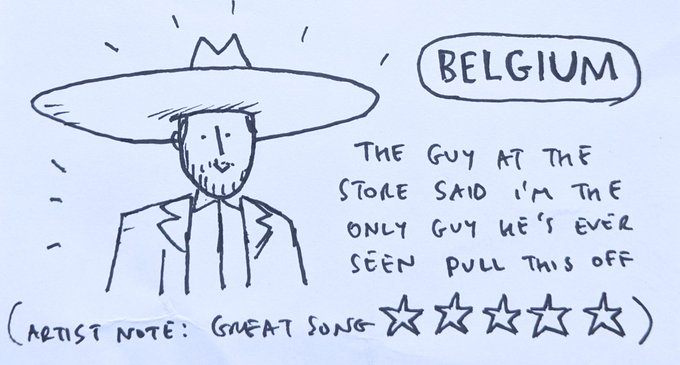 BELGIUM
THE GUY AT THE
STORE SAID I'M THE
ONLY GUY HE'S EVER
SEEN PULL THIS OFF
(ARTIST NOTE: GREAT SONG ☆☆☆☆☆)